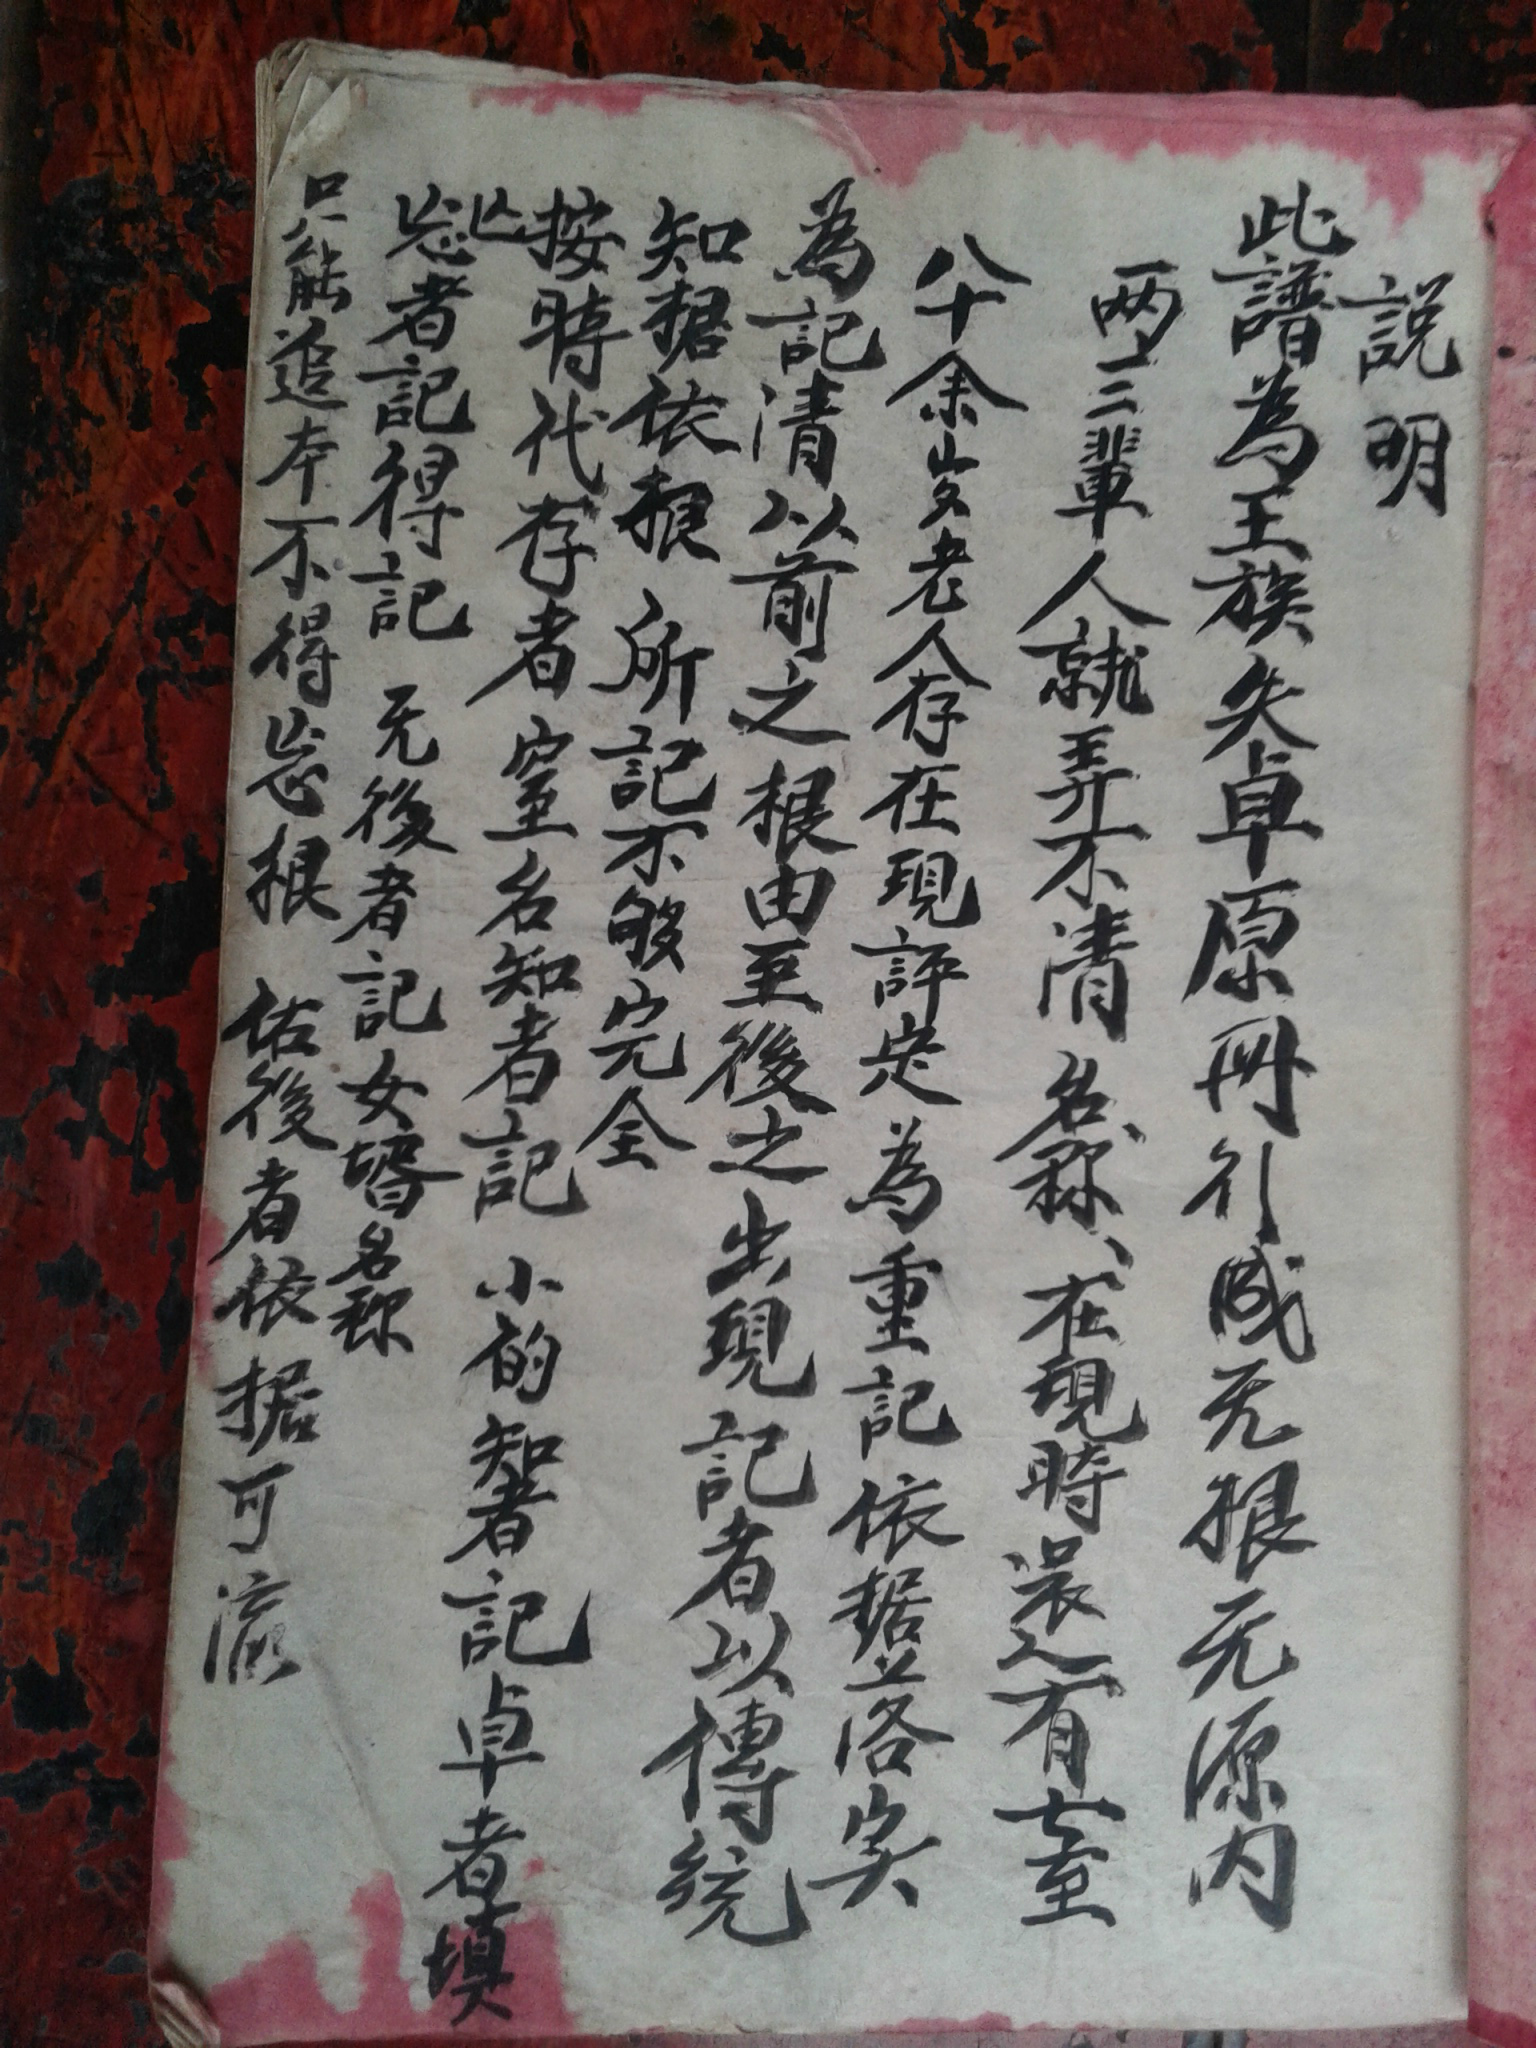 説明
此譜為王族失卓原册引成无根无源内
两三輩人就弄不清名称、在現時還有七至
八十余岁老人存在現評定為重記依据並落实
為記清以前之根由至後之出現記者以傳統
知据依根所記不够完全
按時代存者室名知者記小的知者記卓者填
亡者記得記无後者記女壻名称
只能追本不得忘根 后後者依据可流